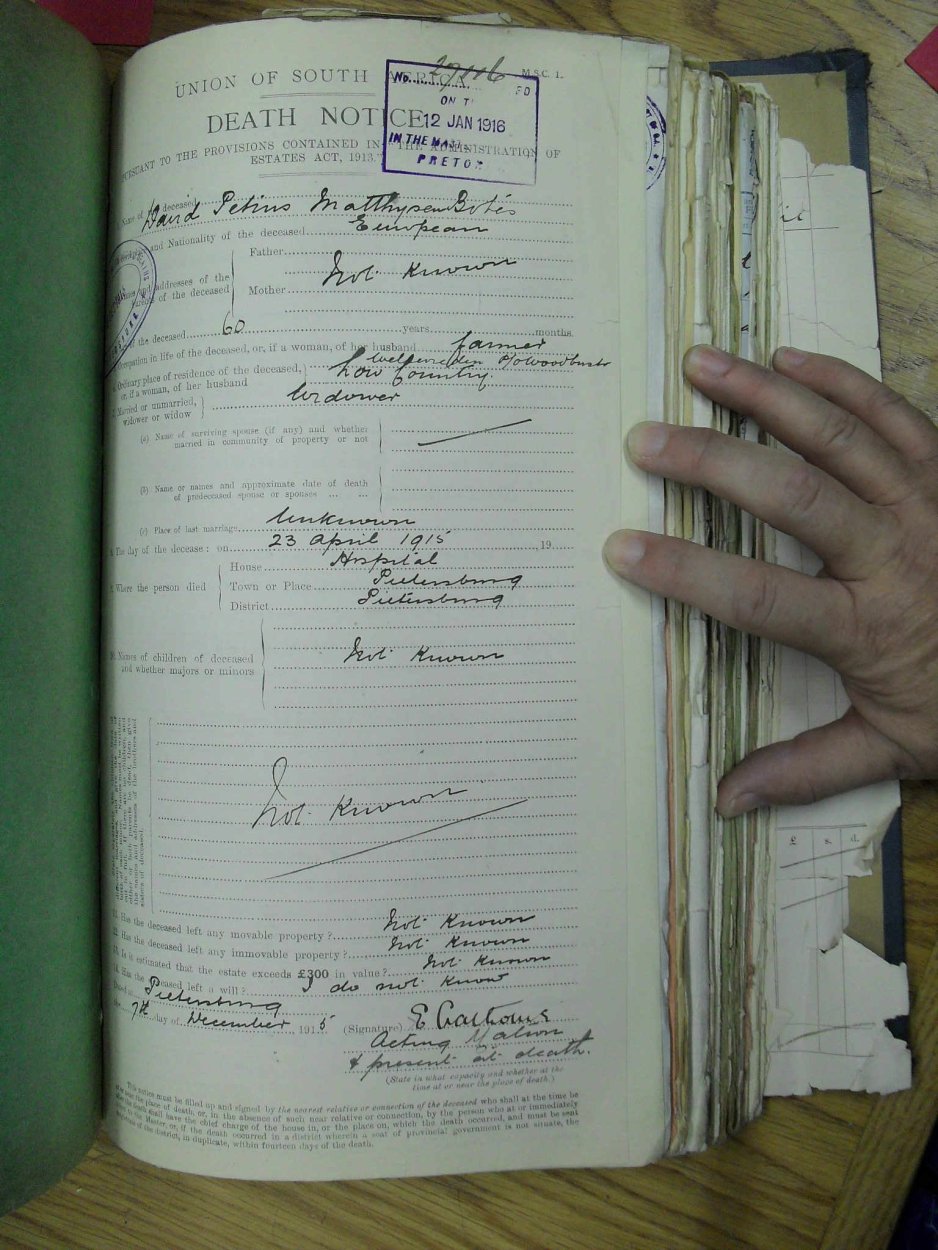 27116
M.S.C. 1.
UNION OF SOUTH
No. ED
ON T
12 JAN 1916
IN THE MAS
PRETOR
DEATH NOTICE
PURSUANT TO THE PROVISIONS CONTAINED IN THE ADMINISTRATION OF
ESTATES ACT, 1913.
Name of deceased David Petrus Matthysen Botes
and Nationality of the deceased European
Names and addresses of the
parents of the deceased
Father
Not Known
Mother
the deceased 60 years months
Occupation in life of the deceased, or, if a woman, of her husband farmer
Ordinary place of residence of the deceased,
or, if a woman, of her husband
P/O Woodbush
Low Country
Married or unmarried,
widower or widow
Widower
(a) Name of surviving spouse (if any) and whether
married in community of property or not
(b) Name or names and approximate date of death
of predeceased spouse or spouses ... ...
(c) Place of last marriage Unknown
The day of the decease: on 23 April 1915 19
Where the person died
House Hospital
Town or Place Pietersburg
District Pietersburg
Names of children of deceased
and whether majors or minors
Not Known
Not Known
Has the deceased left any movable property? Not Known
Has the deceased left any immovable property? Not Known
Is it estimated that the estate exceeds £300 in value? Not Known
Has the deceased left a will? I do not know
Dated at Pietersburg
the 7th day of December 1915
(Signature) E
Acting Matron
& present at death.
(State in what capacity and whether at the
time at or near the place of death.)
This notice must be filled up and signed by the nearest relative or connection of the deceased who shall at the time be
at or near the place of death, or, in the absence of such near relative or connection, by the person who at or immediately
after the death shall have the chief charge of the house in, or the place on, which the death occurred, and must be sent
to the Master, or, if the death occurred in a district wherein a seat of provincial government is not situate, the
of the district, in duplicate, within fourteen days of the death.
£ s. d.